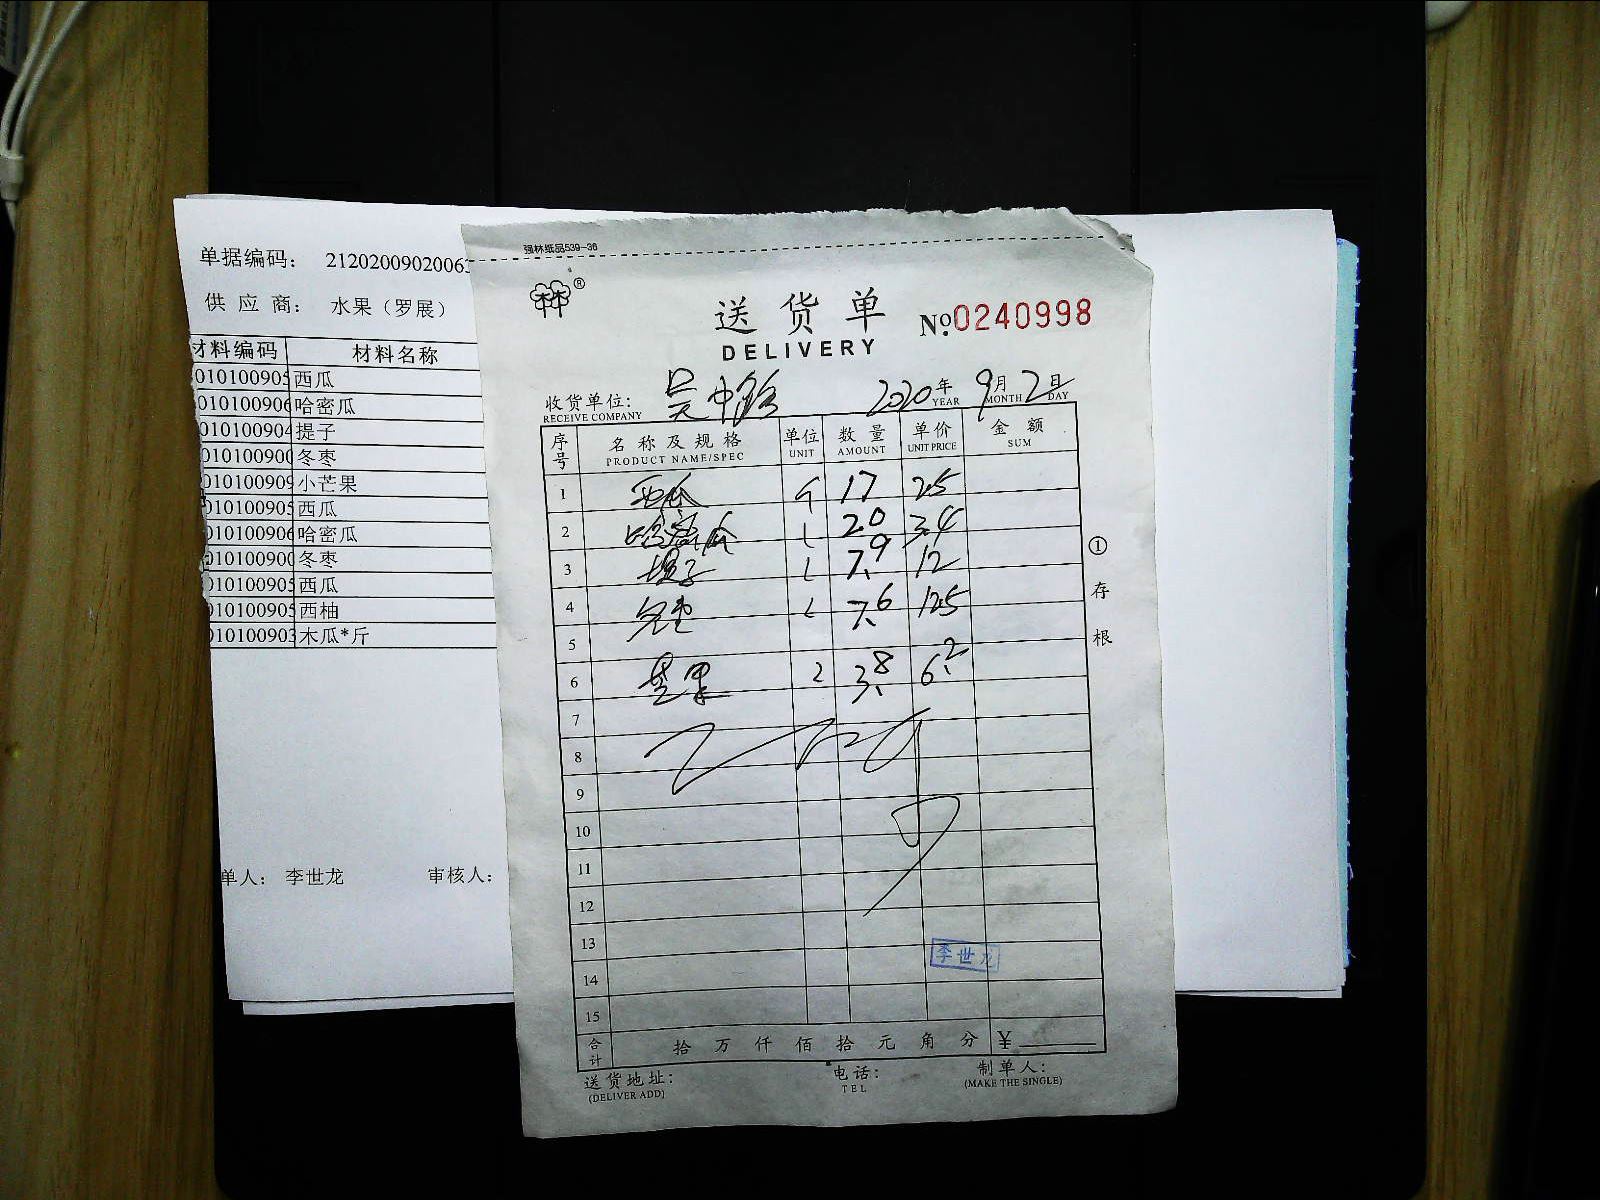 单据编码： 2120200902006
供 应 商： 水果（罗展）
材料编码 材料名称
010100905 西瓜
010100906 哈密瓜
010100904 提子
010100900 冬枣
010100909 小芒果
010100905 西瓜
010100906 哈密瓜
010100900 冬枣
010100905 西瓜
010100905 西柚
010100903 木瓜*斤
单人： 李世龙 审核人：
强林纸品539-36
林®
送货单 №0240998
DELIVERY
收货单位： 吴中路 2020年 9月 2日
RECEIVE COMPANY YEAR MONTH DAY
序号 名称及规格 单位 数量 单价 金额
PRODUCT NAME/SPEC UNIT AMOUNT UNIT PRICE SUM
1 西瓜 17 2.5
2 哈密瓜 20 3.4
3 提子 7.9 12
4 冬枣 7.6 12.5
5
6 芒果 3.8 6.2
7
8
9
10
11
12
13
14
15
李世龙
合计 拾 万 仟 佰 拾 元 角 分 ¥
送货地址： 电话： 制单人：
(DELIVER ADD) TEL (MAKE THE SINGLE)
① 存根